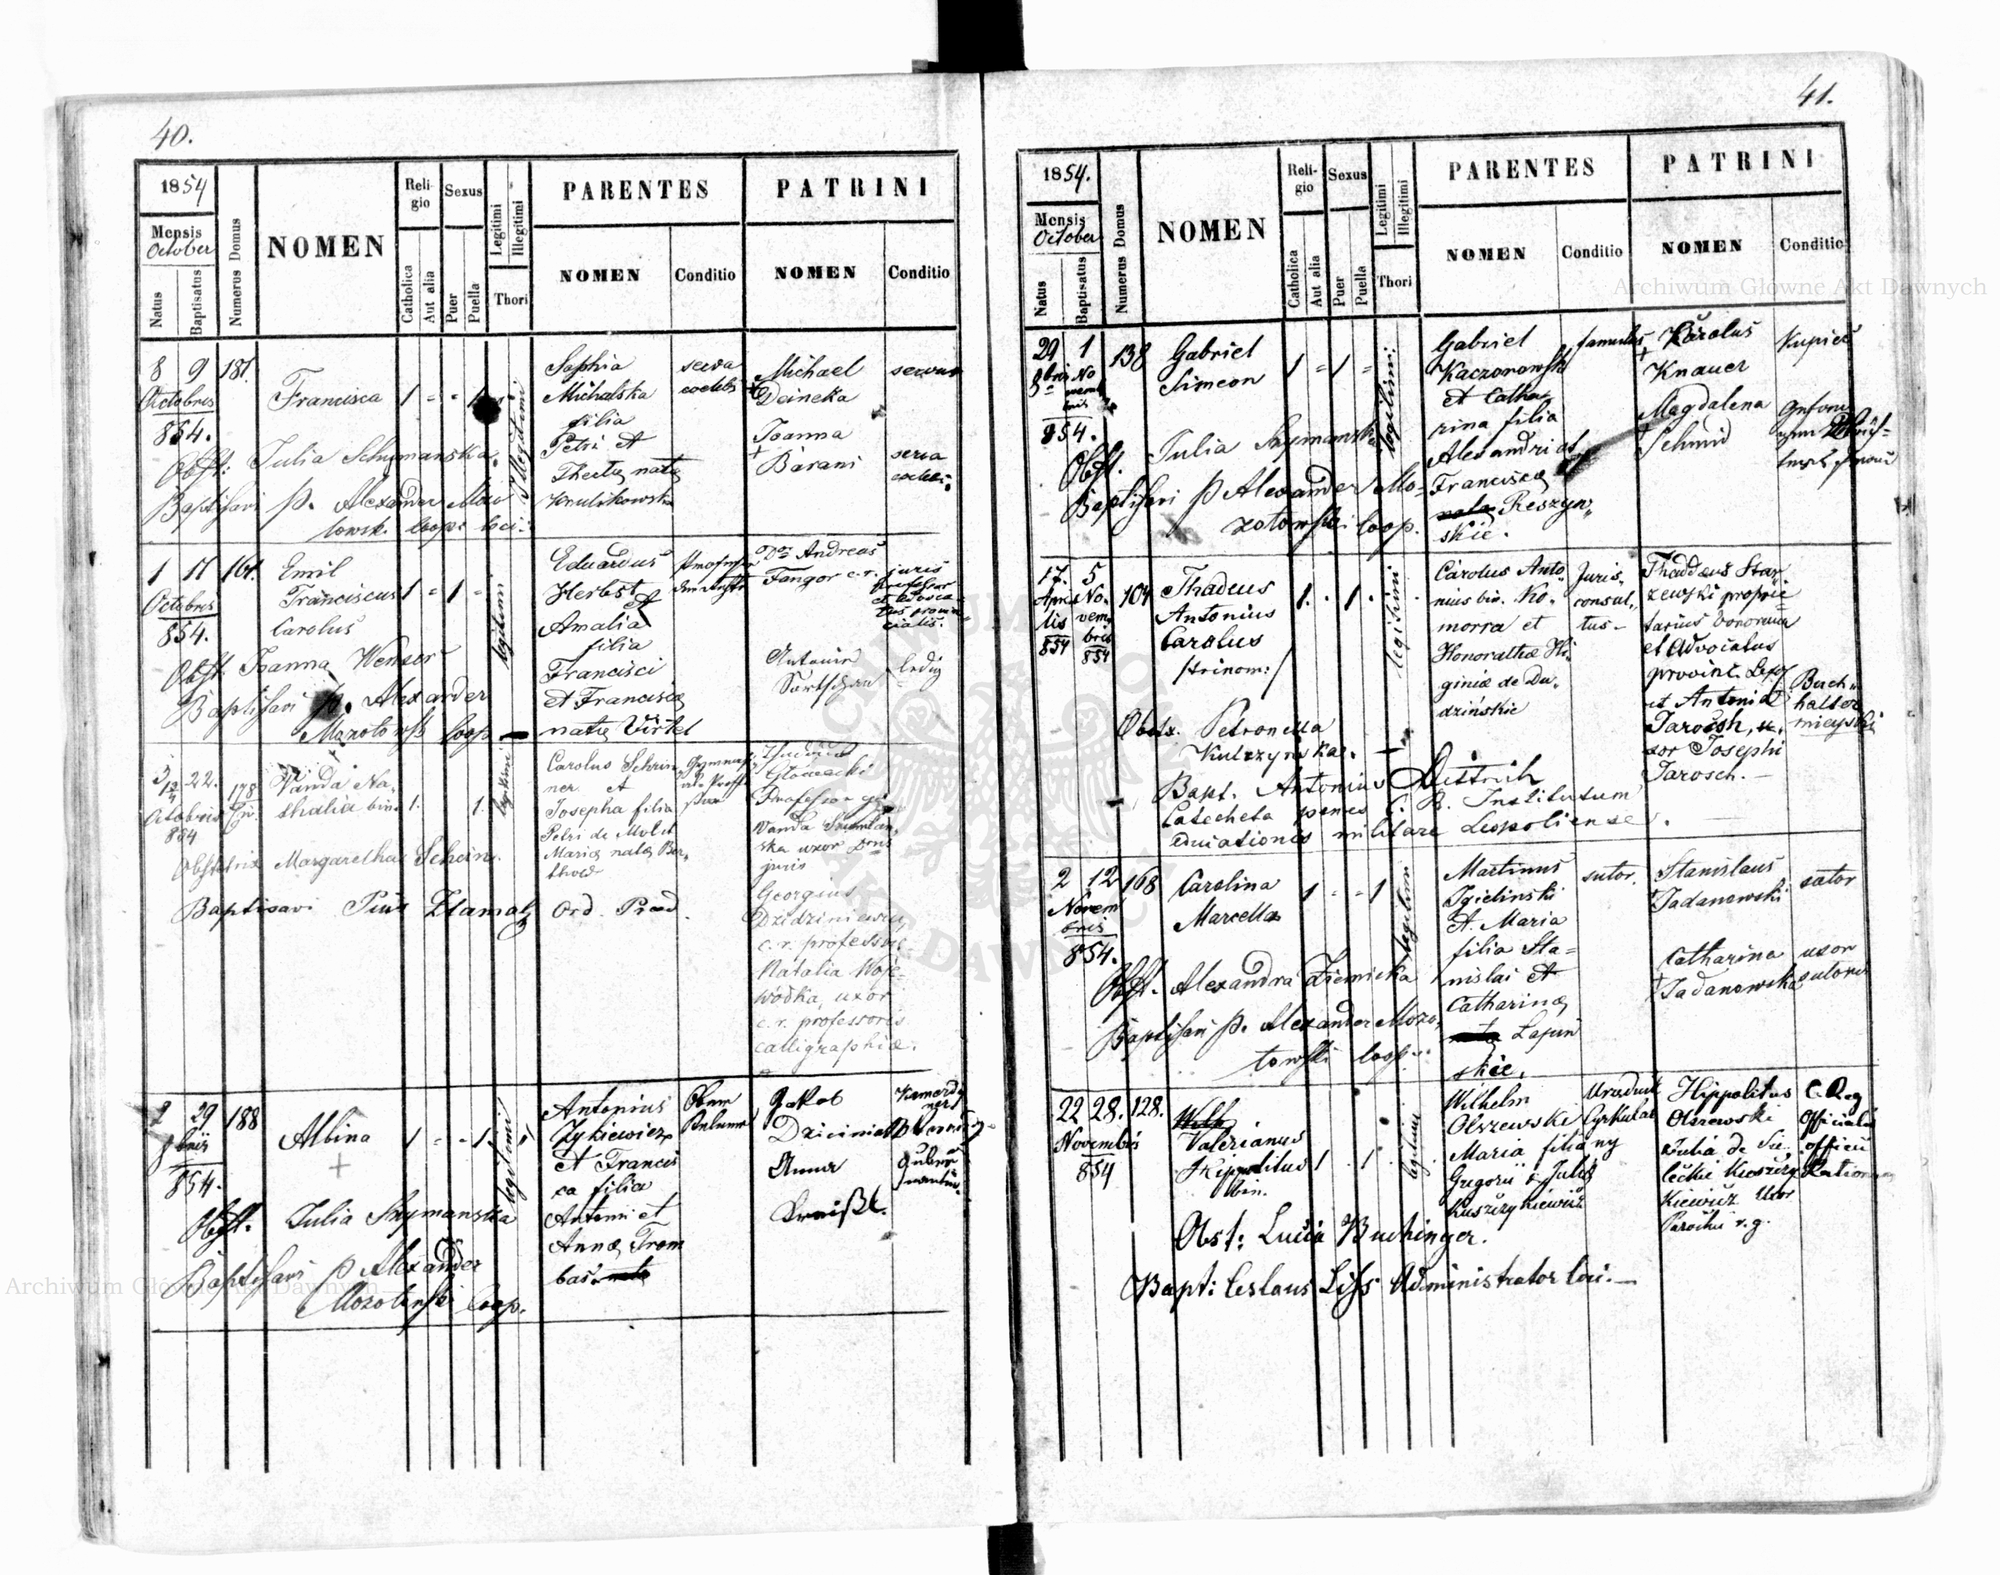 40.
1854
Mensis
October
Natus
Baptisatus
Numerus Domus
NOMEN
Reli-
gio
Catholica
Aut alia
Sexus
Puer
Puella
Legitimi
Illegitimi
Thori
PARENTES
NOMEN
Conditio
PATRINI
NOMEN
Conditio
8 9 187.
Octobris
854.
Francisca
1 = - 1
Illegitimi
Sophia
Michalska
filia
Petri et
Theclę natę
serva
Michael
Deineka
Joanna
Barani
servus
Obst: Julia Schymanska.
Baptisavi p. Alexander Mozo
towsk. Coop. loci.
1 17 161.
Octobris
854.
Emil
Franciscus
Carolus
1 = 1 -
legitimi
Eduardus
Herbst et
Amalia
filia
Francisci
et Franciscę
natę Virtel
Andreas
Fangor c. r. juris
professor
et advoca-
tus provin-
cialis.
Antonia
ledig
Obst. Joanna Wenzer
Baptisavi p. Alexander
Mozotowsk Coop.
22. 178
Octobris
854
Vanda Na-
thalia bin.
1. 1.
legitimi
Carolus Schrin
ner et
Josepha filia
Petri de Molit
Marię natę Ber-
Professor
Vanda
ska uxor
juris
Georgius
c. r. professor
Natalia Woje-
wódka, uxor
c. r. professoris
calligraphiæ.
Obstetrix Margaretha Schein.
Baptisavi Pius Zlamal Ord. Pred.
2 29 188
8bris
854.
Albina
1 = - 1
legitimi
Antonius
Zykiewicz
et Francis
ca filia
Antoni et
Annę Trom
bas.
Jakob
Anna
Obst. Julia Szymanska
Baptisavi p Alexander
Mozotowski Coop.
41.
1854.
Mensis
October
Natus
Baptisatus
Numerus Domus
NOMEN
Reli-
gio
Catholica
Aut alia
Sexus
Puer
Puella
Legitimi
Illegitimi
Thori
PARENTES
NOMEN
Conditio
PATRINI
NOMEN
Conditio
29 1 138
8bris No
vemb
bris
854.
Gabriel
Simeon
1 = 1 =
legitimi
Gabriel
Kaczorowski
et Catha-
rina filia
Alexandri et
Franciscę
Reszyn-
skie.
famulus
Karolus
Knauer
Magdalena
Schmid
Kupiec
Obst. Julia Szymanska
Baptisavi p Alexander Mo-
zotowski Coop.
17. 5 104
Apri No-
lis vem-
bris
854 854
Thadeus
Antonius
Carolus
/trinom:/
1. . 1 .
legitimi
Carolus Anto-
nius bin. Ko-
morra et
Honoratha Hi-
ginia de Du-
dzinskie
Juris-
consul-
tus -
Thaddeus Star
zewski proprie
tarius bonorum
et Advocatus
provint. Leop.
et Antonia
Jarosch, u-
xor Josephi
Jarosch. -
Buch-
halter
miejski
Obstx. Petronella
Kulczynska.
Bapt. Antonius Dittrich
Catecheta penes C. R. Institutum
educationis militare Leopoliense.
2 12 168
Novem
bris
854.
Carolina
Marcella
1 - - 1
legitimi
Martinus
Igielinski
et Maria
filia Sta-
nislai et
Catharinę
Lajun
skie.
sutor.
Stanislaus
Jadanowski
Catharina
Jadanowska
sutor
uxor
sutoris
Obst. Alexandra Ziemicka
Baptisavi p. Alexander Mozo-
towski Coop.
22 28. 128.
Novembris
854
Valerianus
Hippolitus
bin.
1 . 1 .
legitimi
Wilhelm
Olszewski
Maria filia
Gregorii & Julię
Kuszczykiewicz
Urzednik
Cyrkular
ny
Hippolitus
Olszewski
Julia de Sie-
leckie Kuszczy
Kiewicz Uxor
Parochi r. g.
C. Reg
Officialis
officii
Obst: Lucia Buchinger.
Bapt: Ceslaus Liss Administrator loci.-
Archiwum Główne Akt Dawnych
Archiwum Główne Akt Dawnych